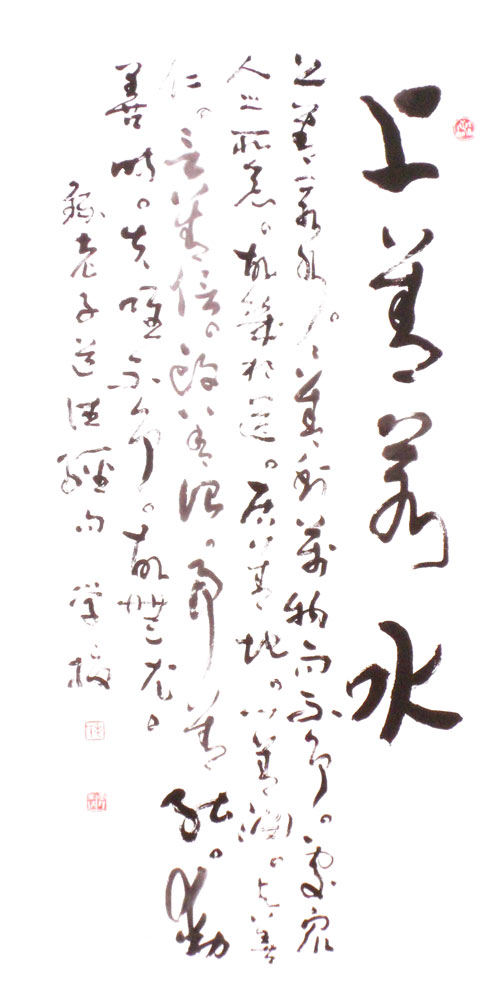 上善若水
上善若水。水善利萬物而不争。處衆
人之所惡。故幾於道。居善地。心善淵。与善
仁。言善信。政善治。事善能。動
善時。夫唯不争。故無尤。
録老子道德經句 学